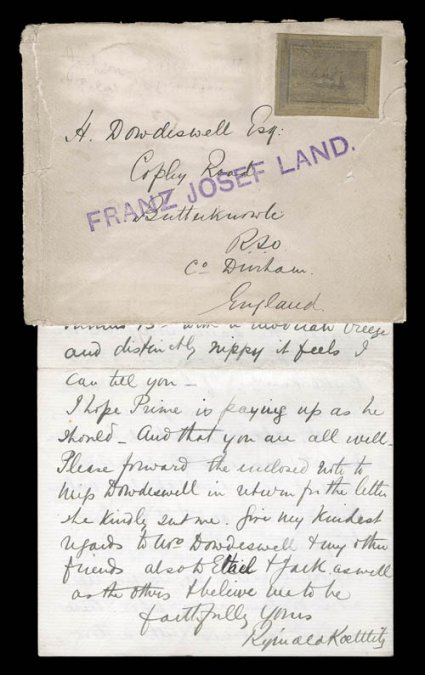 H. Dowdeswell Esq:
Copley Road
FRANZ JOSEF LAND.
Butterknowle
R.S.O
Co Durham.
England
minus 13° with a moderate breeze
and distinctly nippy it feels I
can tell you –
I hope Prime is paying up as he
should – And that you are all well –
Please forward the enclosed note to
Miss Dowdeswell in return for the letter
she kindly sent me. Give my kindest
regards to Mrs Dowdeswell & my other
friends also to & Jack as well
as the others & believe me to be
faithfully yours
Reginald Koettlitz